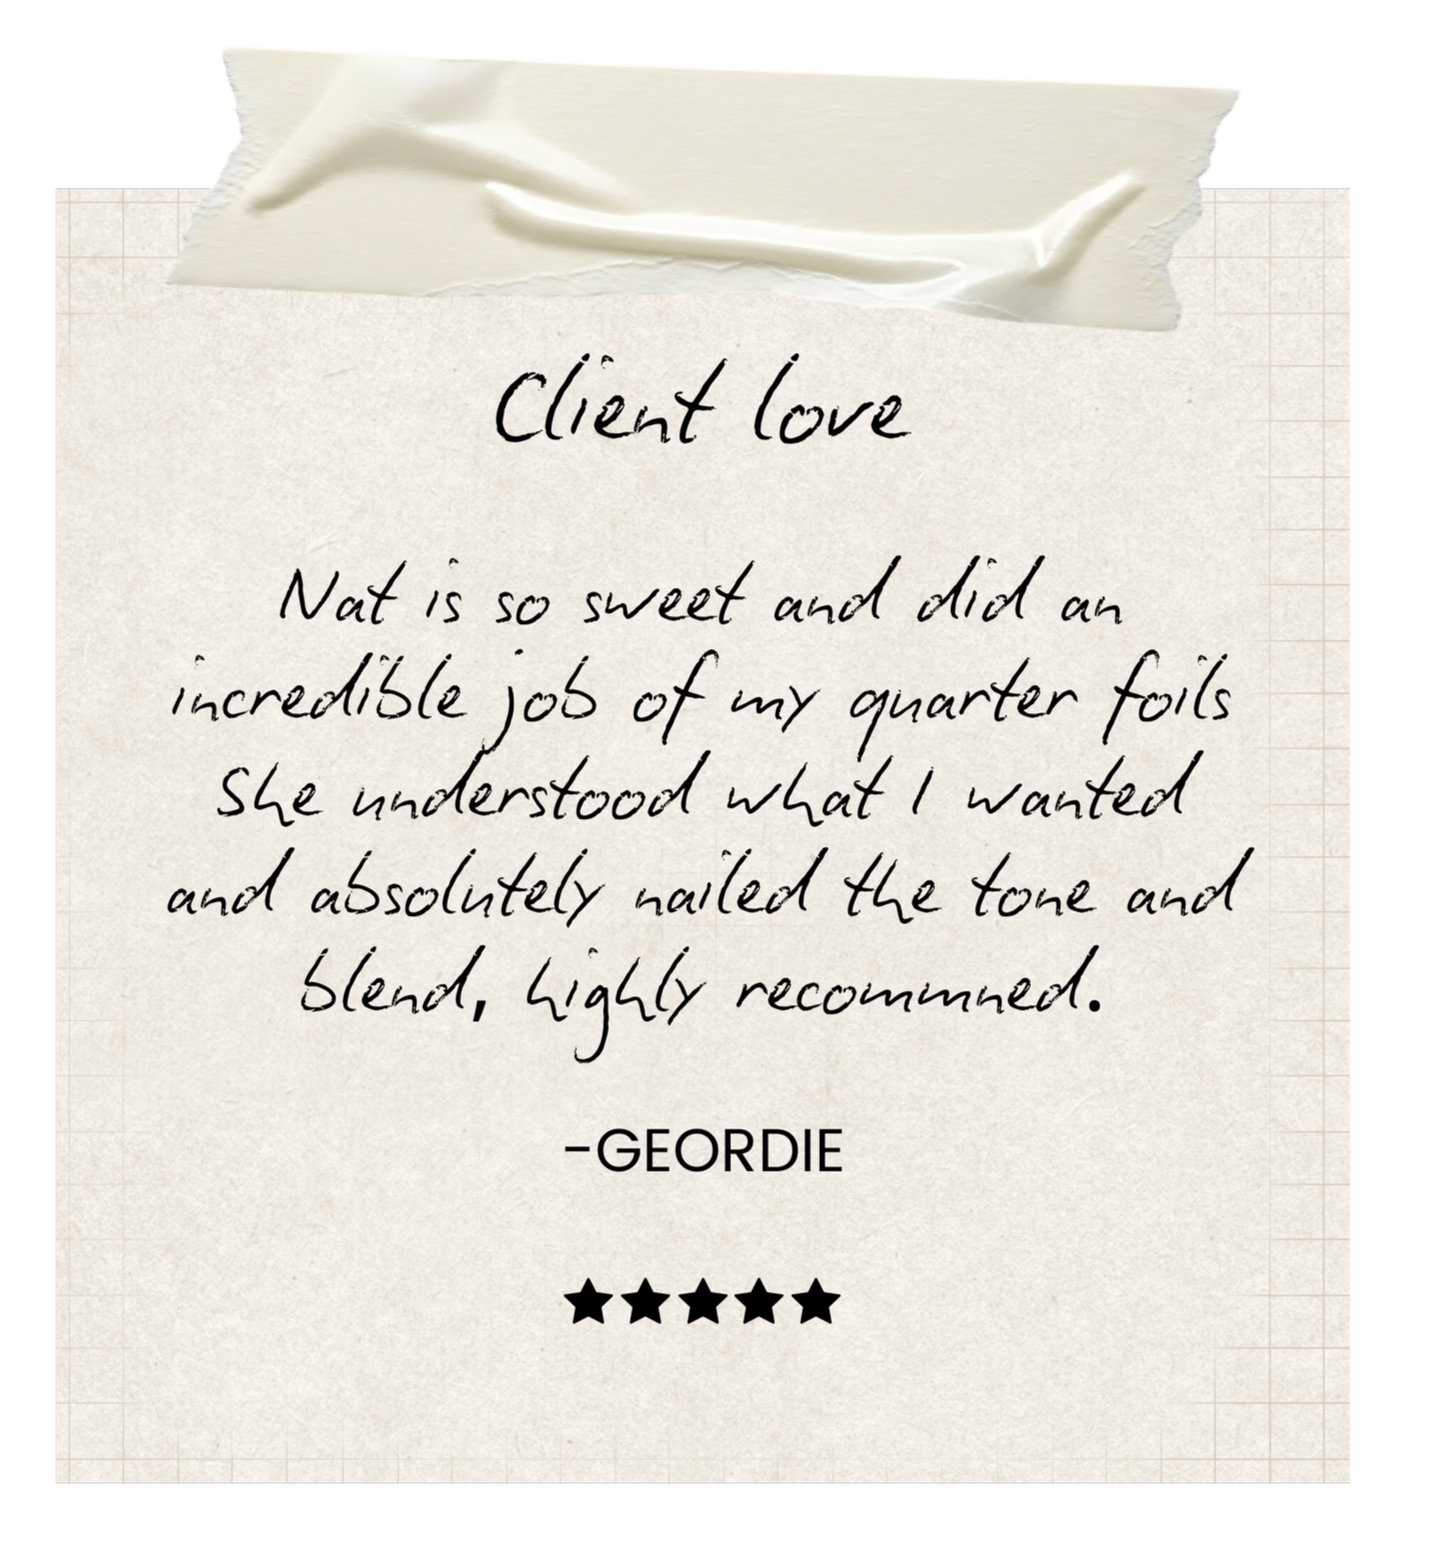 Client love
Nat is so sweet and did an
incredible job of my quarter foils
She understood what I wanted
and absolutely nailed the tone and
blend, highly recommned.
-GEORDIE
★★★★★